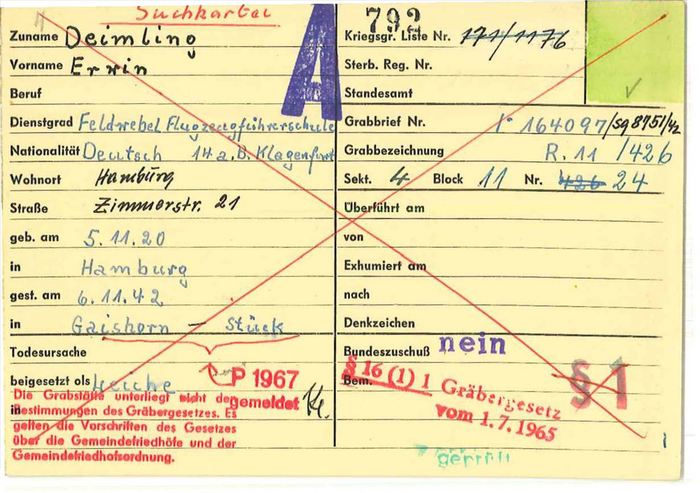 Suchkartei
792
A
Zuname Deimling
Vorname Erwin
Beruf
Dienstgrad Feldwebel Flugzeugführerschule
Nationalität Deutsch 14 a.B. Klagenfurt
Wohnort Hamburg
Straße Zimmerstr. 21
geb. am 5.11.20
in Hamburg
gest. am 6.11.42
in Gaishorn — Stück
Todesursache
beigesetzt als Leiche
in
P 1967
gemeldet
Die Grabstätte unterliegt nicht den
Bestimmungen des Gräbergesetzes. Es
gelten die Vorschriften des Gesetzes
über die Gemeindefriedhöfe und der
Gemeindefriedhofsordnung.
Kriegsgr. Liste Nr. 171/1176
Sterb. Reg. Nr.
Standesamt
Grabbrief Nr. 164097/sg8751/42
Grabbezeichnung R. 11 /426
Sekt. 4 Block 11 Nr. 426 24
Überführt am
von
Exhumiert am
nach
Denkzeichen
Bundeszuschuß nein
Bem.
§ 16 (1) 1 Gräbergesetz
vom 1.7.1965
§ 1
geprüft